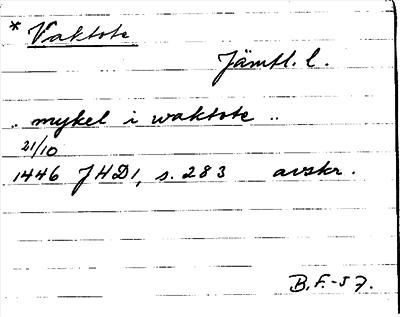 * Vaktote
Jämtl. l.
.. mykel i waktote ..
21/10
1446 JHD1, s. 283 avskr.
B.F.-57.